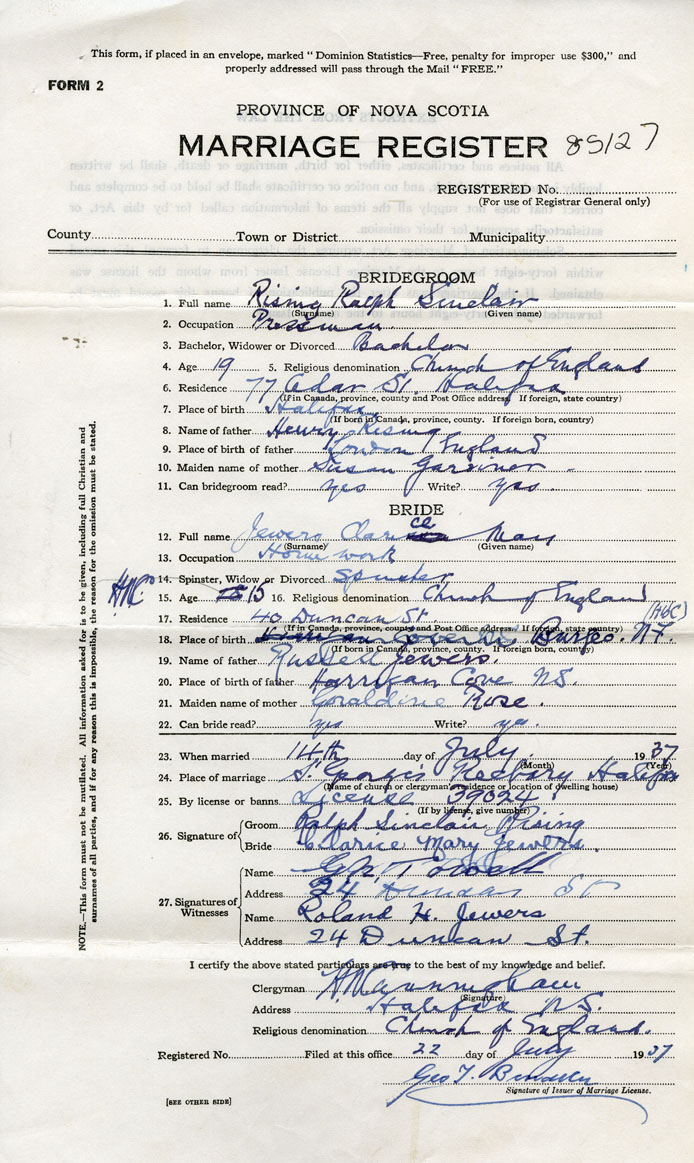 This form, if placed in an envelope, marked "Dominion Statistics—Free, penalty for improper use $300," and
properly addressed will pass through the Mail "FREE."
FORM 2
PROVINCE OF NOVA SCOTIA
MARRIAGE REGISTER 85127
REGISTERED No.
(For use of Registrar General only)
County Town or District Municipality
BRIDEGROOM
1. Full name Rising Ralph Sinclair
(Surname) (Given name)
2. Occupation Pressman
3. Bachelor, Widower or Divorced Bachelor
4. Age 19 5. Religious denomination Church of England
6. Residence 77 Cedar St. Halifax
(If in Canada, province, county and Post Office address. If foreign, state country)
7. Place of birth Halifax
(If born in Canada, province, county. If foreign born, country)
8. Name of father Henry Rising
9. Place of father London England
10. Maiden name of mother Susan Gardiner
11. Can bridegroom read? yes Write? yes
BRIDE
12. Full name Jewers May
(Surname) (Given name)
13. Occupation Home work
14. Spinster, Widow or Divorced Spinster
HMC 15. Age 16. Religious denomination Church of England
17. Residence 40 Duncan St
(If in Canada, province, county and Post Office address. If foreign, state country)
18. Place of birth Burgeo. NF.
(If born in Canada, province, county. If foreign born, country)
19. Name of father Russell Jewers.
20. Place of birth of father Harrigan Cove N.S.
21. Maiden name of mother Geraldine Rose.
22. Can bride read? yes Write? yes.
23. When married 14th day of July. 1937
(Month) (Year)
24. Place of marriage St George's Rectory Halifax
(Name of church or clergyman's residence or location of dwelling house)
25. By license or banns License 37024
(If by license, give number)
26. Signature of
Groom Ralph Sinclair Rising
Bride Clarice Mary Jewers.
27. Signatures of Witnesses
Name
Address 24 Duncan St
Name Roland H. Jewers
Address 24 Duncan St.
I certify the above stated particulars are true to the best of my knowledge and belief.
Clergyman
(Signature)
Address Halifax N.S.
Religious denomination Church of England.
Registered No. Filed at this office 22 day of July 1937
Geo T.
Signature of Issuer of Marriage License.
[SEE OTHER SIDE]
NOTE.—This form must not be mutilated. All information asked for is to be given, including full Christian and
surnames of all parties, and if for any reason this is impossible, the reason for the omission must be stated.